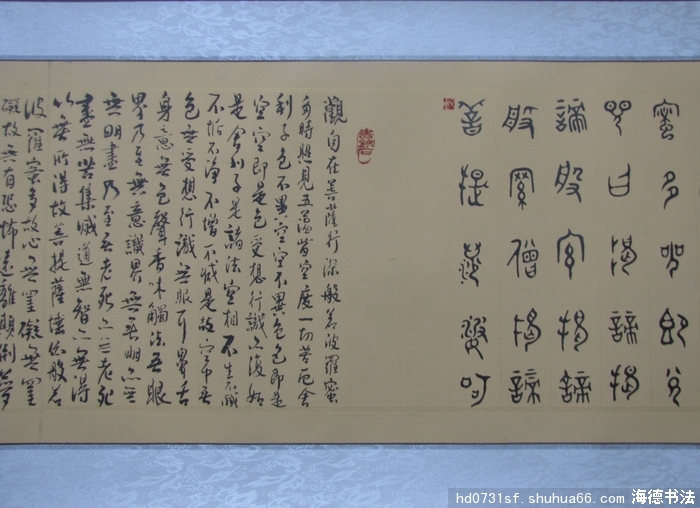 蜜多呪即說
呪曰揭諦揭
諦般羅揭諦
般羅僧揭諦
菩提薩婆呵
觀自在菩薩行深般若波羅蜜
多時照見五蘊皆空度一切苦厄舍
利子色不異空空不異色色即是
空空即是色受想行識亦復如
是舍利子是諸法空相不生不滅
不垢不淨不增不減是故空中無
色無受想行識無眼耳鼻舌
身意無色聲香味觸法無眼
界乃至無意識界無無明亦無
無明盡乃至無老死亦無老死
盡無苦集滅道無智亦無得
以無所得故菩提薩埵依般若
波羅蜜多故心無罣礙無罣
礙故無有恐怖遠離顛倒夢
hd0731sf.shuhua66.com 海德书法